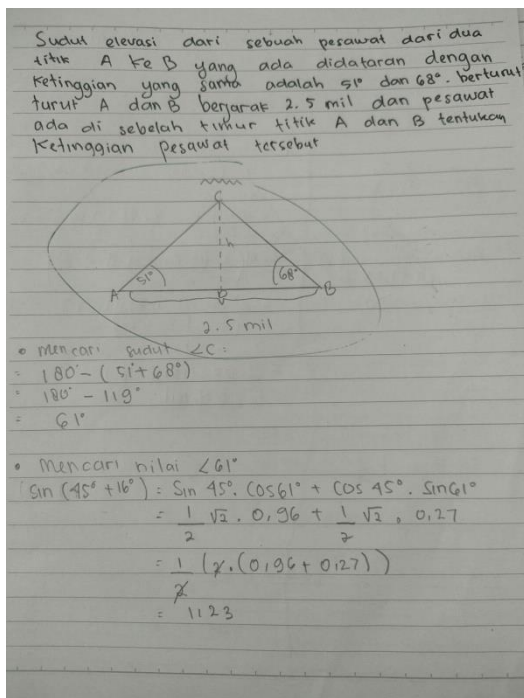 Sudut elevasi dari sebuah pesawat dari dua
titik A ke B yang ada didataran dengan
ketinggian yang sama adalah 51° dan 68°. berturut
turut A dan B berjarak 2.5 mil dan pesawat
ada di sebelah timur titik A dan B tentukan
Ketinggian pesawat tersebut
C
h
51°
68°
A
B
2.5 mil
• Mencari sudut ∠C:
= 180° - (51° + 68°)
= 180° - 119°
= 61°
• Mencari nilai ∠61°
Sin (45° + 16°) = Sin 45°. Cos61° + Cos 45°. Sin61°
= 1/2 √2 . 0,96 + 1/2 √2 . 0,27
= 1/2 (2.(0,96 + 0,27))
= 1123